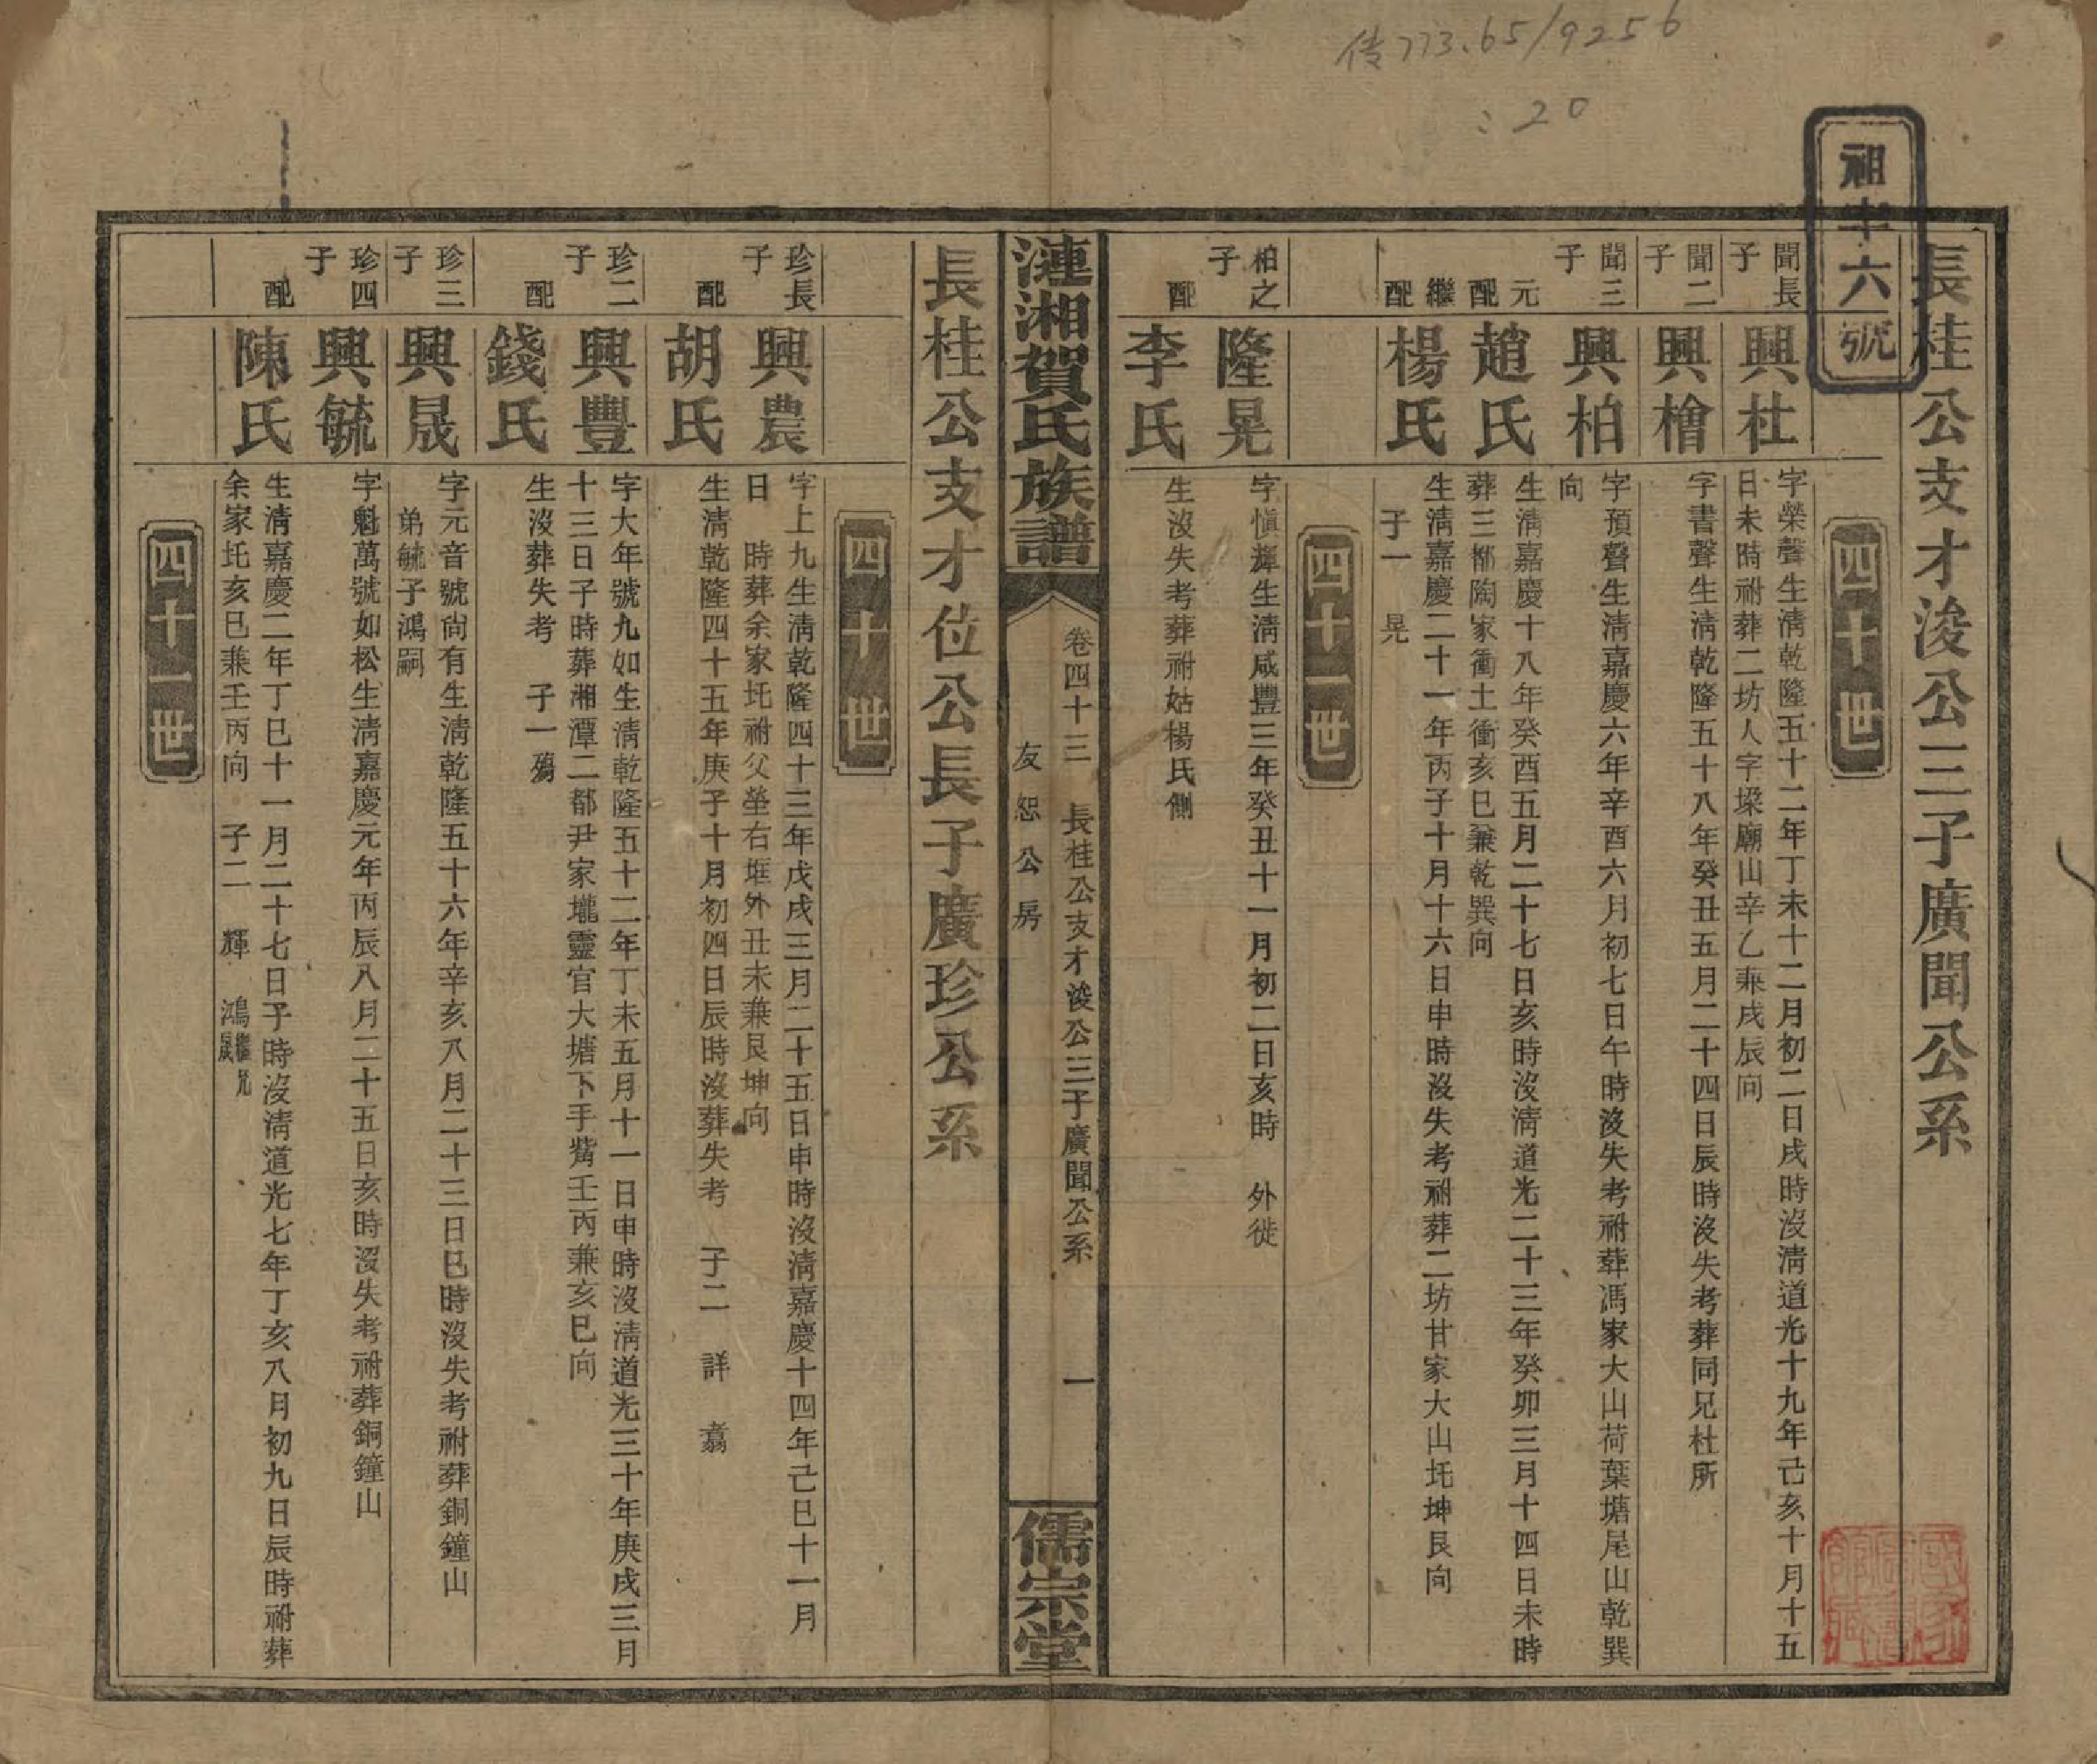 传773.65/9256
:20
祖字六號
長桂公支才浚公三子廣聞公系
四十世
聞長子
興杜
字榮聲生清乾隆五十二年丁未十二月初二日戌時沒清道光十九年己亥十月十五
日未時祔葬二坊人字墚廟山辛乙兼戌辰向
聞二子
興檜
字書聲生清乾隆五十八年癸丑五月二十四日辰時沒失考葬同兄杜所
聞三子
興柏
字預聲生清嘉慶六年辛酉六月初七日午時沒失考祔葬馮家大山荷葉塘尾山乾巽
向
元配
趙氏
生清嘉慶十八年癸酉五月二十七日亥時沒清道光二十三年癸卯三月十四日未時
葬三都陶家衝土衝亥巳兼乾巽向
繼配
楊氏
生清嘉慶二十一年丙子十月十六日申時沒失考祔葬二坊甘家大山坉坤艮向
子一 晃
四十一世
柏之子
隆晃
字愼輝生清咸豐三年癸丑十一月初二日亥時 外徙
配
李氏
生沒失考葬祔姑楊氏側
漣湘賀氏族譜
卷四十三 長桂公支才浚公三子廣聞公系 一
友恕公房
儒宗堂
長桂公支才位公長子廣珍公系
四十世
珍長子
興農
字上九生清乾隆四十三年戊戌三月二十五日申時沒清嘉慶十四年己巳十一月
日 時葬余家坉祔父塋右堐外丑未兼艮坤向
配
胡氏
生清乾隆四十五年庚子十月初四日辰時沒葬失考 子二 詳 翥
珍二子
興豐
字大年號九如生清乾隆五十二年丁未五月十一日申時沒清道光三十年庚戌三月
十三日子時葬湘潭二都尹家壠靈官大塘下手觜壬丙兼亥巳向
配
錢氏
生沒葬失考 子一殤
珍三子
興晟
字元音號尙有生清乾隆五十六年辛亥八月二十三日巳時沒失考祔葬銅鐘山
弟毓子鴻嗣
珍四子
興毓
字魁萬號如松生清嘉慶元年丙辰八月二十五日亥時沒失考祔葬銅鐘山
配
陳氏
生清嘉慶二年丁巳十一月二十七日子時沒清道光七年丁亥八月初九日辰時祔葬
余家坉亥巳兼壬丙向 子二 輝 鴻繼兄晟
四十一世